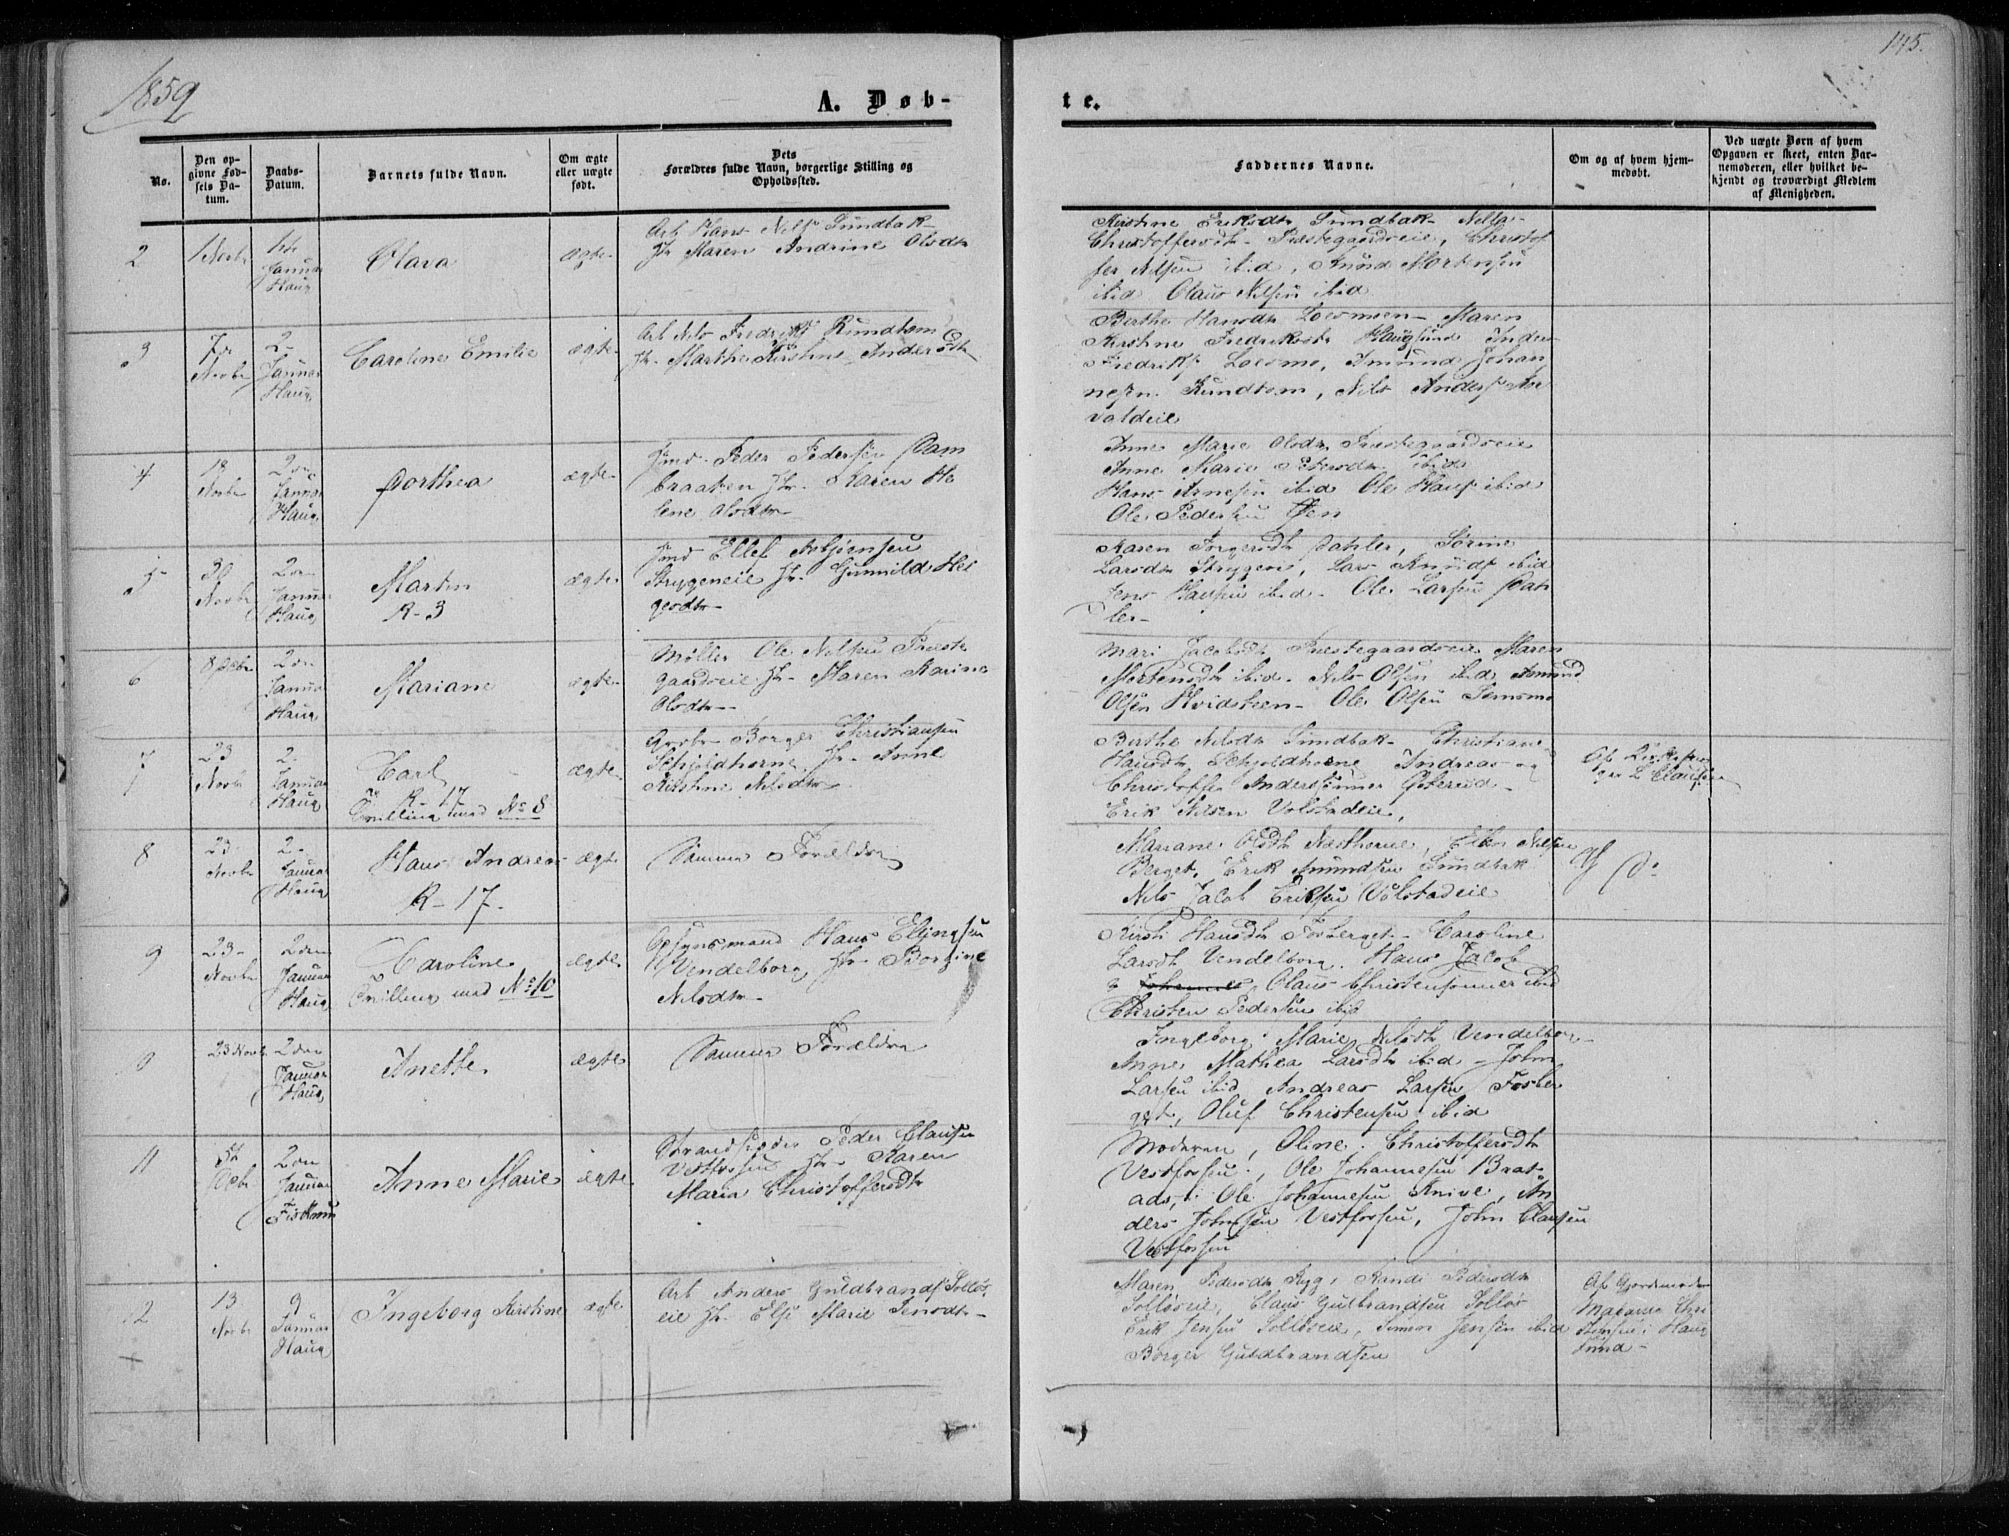 1859
145.
A. Døb-
te.
No.
Den op-
givne Fød-
sels Da-
tum.
Daabs-
Datum.
Barnets fulde Navn.
Om ægte
eller uægte
født.
Dets
Forældres fulde Navn, borgerlige Stilling og
Opholdssted.
Faddernes Navne.
Om og af hvem hjem-
medøbt.
Ved uægte Børn af hvem
Opgaven er skeet, enten Bar-
nemoderen, eller hvilket be-
kjendt og troværdigt Medlem
af Menigheden.
2
1 Novbr
Januar
Haug
Olava
ægte
Arb Hans Nils Sundbak
Hr Maren Andrine Olsdtr
Kirstine Eriksdtr Sundbak
Christoffersdtr Præstegaardseie, Christof
fer Nilsen ibid, Knud Mortensen
ibid Olaus Nilsen ibid
3
Novbr
2-
Januar
Haug
Caroline Emilie
ægte
Arb Nils Fredriks Rundtom
Hr Marthe Kirstine Andersdtr
Berthe Hansdtr Loesmoen Maren
Kirstine Fredriksdtr Haugsund Anders
Fredriks Loesmo, Amund Johan
nesen Rundtom, Nils Anders
valdeie
4
18
Novbr
2den
Januar
Haug
Dorthea
ægte
Peder Pedersen Dam
braaten Hr Karen He
lene Olsdtr
Anne Marie Olsdtr Præstegaardseie
Anne Marie Petersdtr ibid
Hans Arnesen ibid Ole Hans ibid
Ole Pedersen Øen
5
30
Novbr
2den
Januar
Haug
Martin
R-3
ægte
Ellef Asbjørnsen
Strygeneie Hr Gunnild Hel
gesdtr
Karen Torgersdtr Dahler, Sørine
Larsdtr Strygen, Lars Knuds ibid
Jens Hansen ibid Ole Larsen Dah
ler
6
8 Decbr
2den
Januar
Haug
Mariane
ægte
Møller Ole Nilsen Præste
gaardseie Hr Maren Karine
Olsdtr
Mari Jacobsdtr Præstegaardseie Maren
Mortensdtr ibid. Nils Olsen ibid, Amund
Olsen Hvidsteen Ole Olsen Semsmo
7
23
Novbr
2-
Januar
Haug
Carl
R-17
Tvilling med No 8
ægte
Borger Christiansen
Schjoldhorne Hr Anne
Kirstine Nilsdtr
Berthe Nilsdtr Sundbak Christiane
Hansdtr Schjoldhorne Andreas og
Christoffer Anderssønner Gjeterud
Erik Nilsen Volstadeie,
8
23
Novbr
2-
Januar
Haug
Hans Andreas
R-17.
ægte
Samme Forældre
Mariane Olsdtr Næsthorne, Ellen Nilsen
Berget, Erik Amundsen Sundbak
Nils Jacob Eriksen Volstadeie
Af Do
9
23-
Novbr
2den
Januar
Haug
Caroline
Tvilling med No 10
ægte
Opsynsmand Hans Ellingsen
Vendelborg Hr Borgine
Nilsdtr
Kirsti Hansdtr Fosberget Caroline
Larsdtr Vendelborg. Hans Jacob
Olaus Christensønner ibid
Christen Pedersen ibid
23 Novbr
2den
Januar
Haug
Anette
ægte
Samme Forældre
Ingeborg Marie Nilsdtr Vendelborg
Anne Mathea Larsdtr ibid John
Larsen ibid Andreas Larsen Fosber
get, Oluf Christensen ibid
11
Decbr
2den
Januar
Fiskum
Anne Marie
ægte
Strandsidder Peder Clausen
Vestfossen Hr Karen
Maria Christoffersdtr
Moderen, Oline Christoffersdtr
Vestfossen, Ole Johannesen Brat
aas, Ole Johannesen Knive, An
ders Johnsen Vestfossen, John Clausen
Vestfossen
12
13
Novbr
9
Januar
Haug
Ingeborg Kirstine
ægte
Arb Anders Guldbrands Solløs
eie Hr Else Marie Jensdtr
Maren Pedersdtr Ryg, Randi Pedersdtr
Solløseie, Claus Gulbrandsen Solløs
Erik Jensen Solløseie, Simon Jensen ibid
Borger Guldbrandsen
Af Gjordemoder
Madame Chri
stensen i Haug
sund